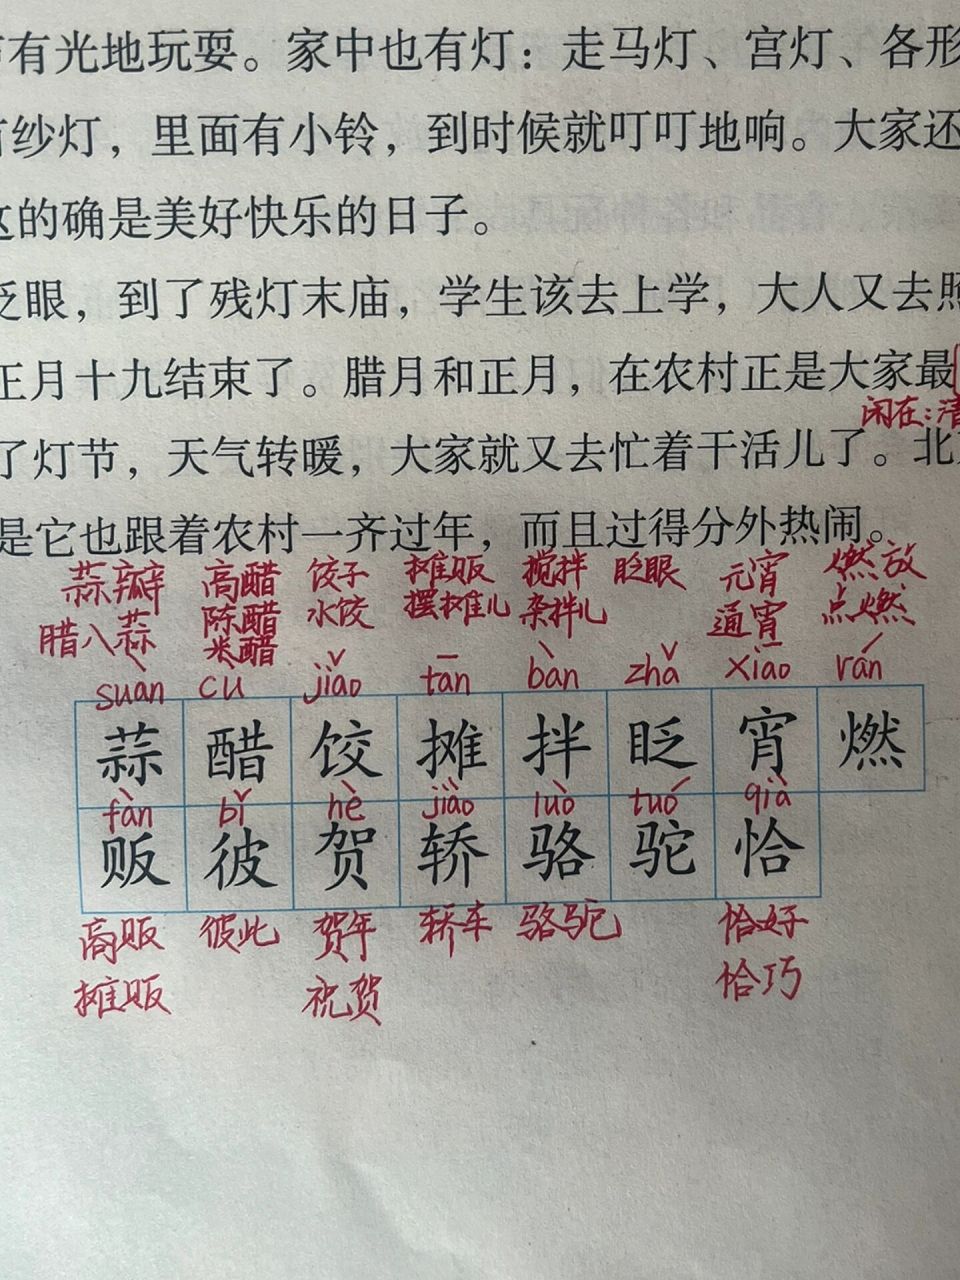 有光地玩耍。家中也有灯：走马灯、宫灯、各形
有纱灯，里面有小铃，到时候就叮叮地响。大家还
这的确是美好快乐的日子。
眨眼，到了残灯末庙，学生该去上学，大人又去照
正月十九结束了。腊月和正月，在农村正是大家最
闲在：清
了灯节，天气转暖，大家就又去忙着干活儿了。北
是它也跟着农村一齐过年，而且过得分外热闹。
蒜瓣 高醋 饺子 摊贩 搅拌 眨眼 元宵 燃放
腊八蒜 陈醋 水饺 摆摊儿 杂拌儿 通宵 点燃
米醋
suàn cù jiǎo tān bàn zhǎ xiāo rán
蒜 醋 饺 摊 拌 眨 宵 燃
fàn bǐ hè jiào luò tuó qià
贩 彼 贺 轿 骆 驼 恰
商贩 彼此 贺年 轿车 骆驼 恰好
摊贩 祝贺 恰巧